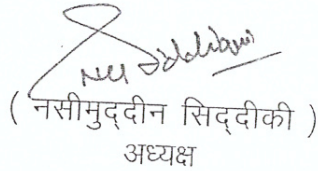 ( नसीमुद्दीन सिद्दीकी )
अध्यक्ष